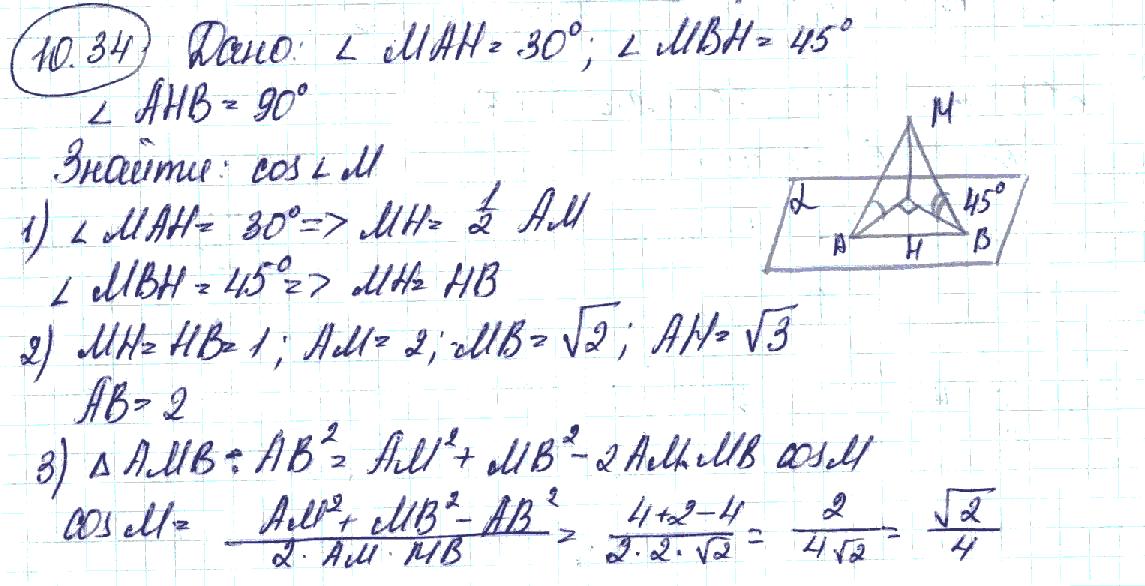 10.34 Дано: ∠ MAH = 30°; ∠ MBH = 45°
∠ AHB = 90°
Знайти: cos ∠ M
1) ∠ MAH = 30° => MH = 1/2 AM
∠ MBH = 45° => MH = HB
2) MH = HB = 1; AM = 2; MB = √2; AH = √3
AB = 2
3) △ AMB: AB² = AM² + MB² - 2AM·MB cosM
cosM = (AM² + MB² - AB²)/(2·AM·MB) = (4+2-4)/(2·2·√2) = 2/(4√2) = √2/4
M
α
45°
A
H
B